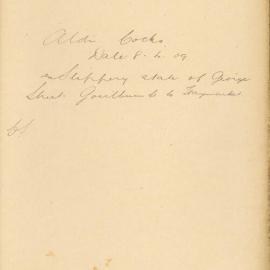 Ald. Cocks
Date 8-6-09
re Slippery state of George
Street Goulburn St to Haymarket